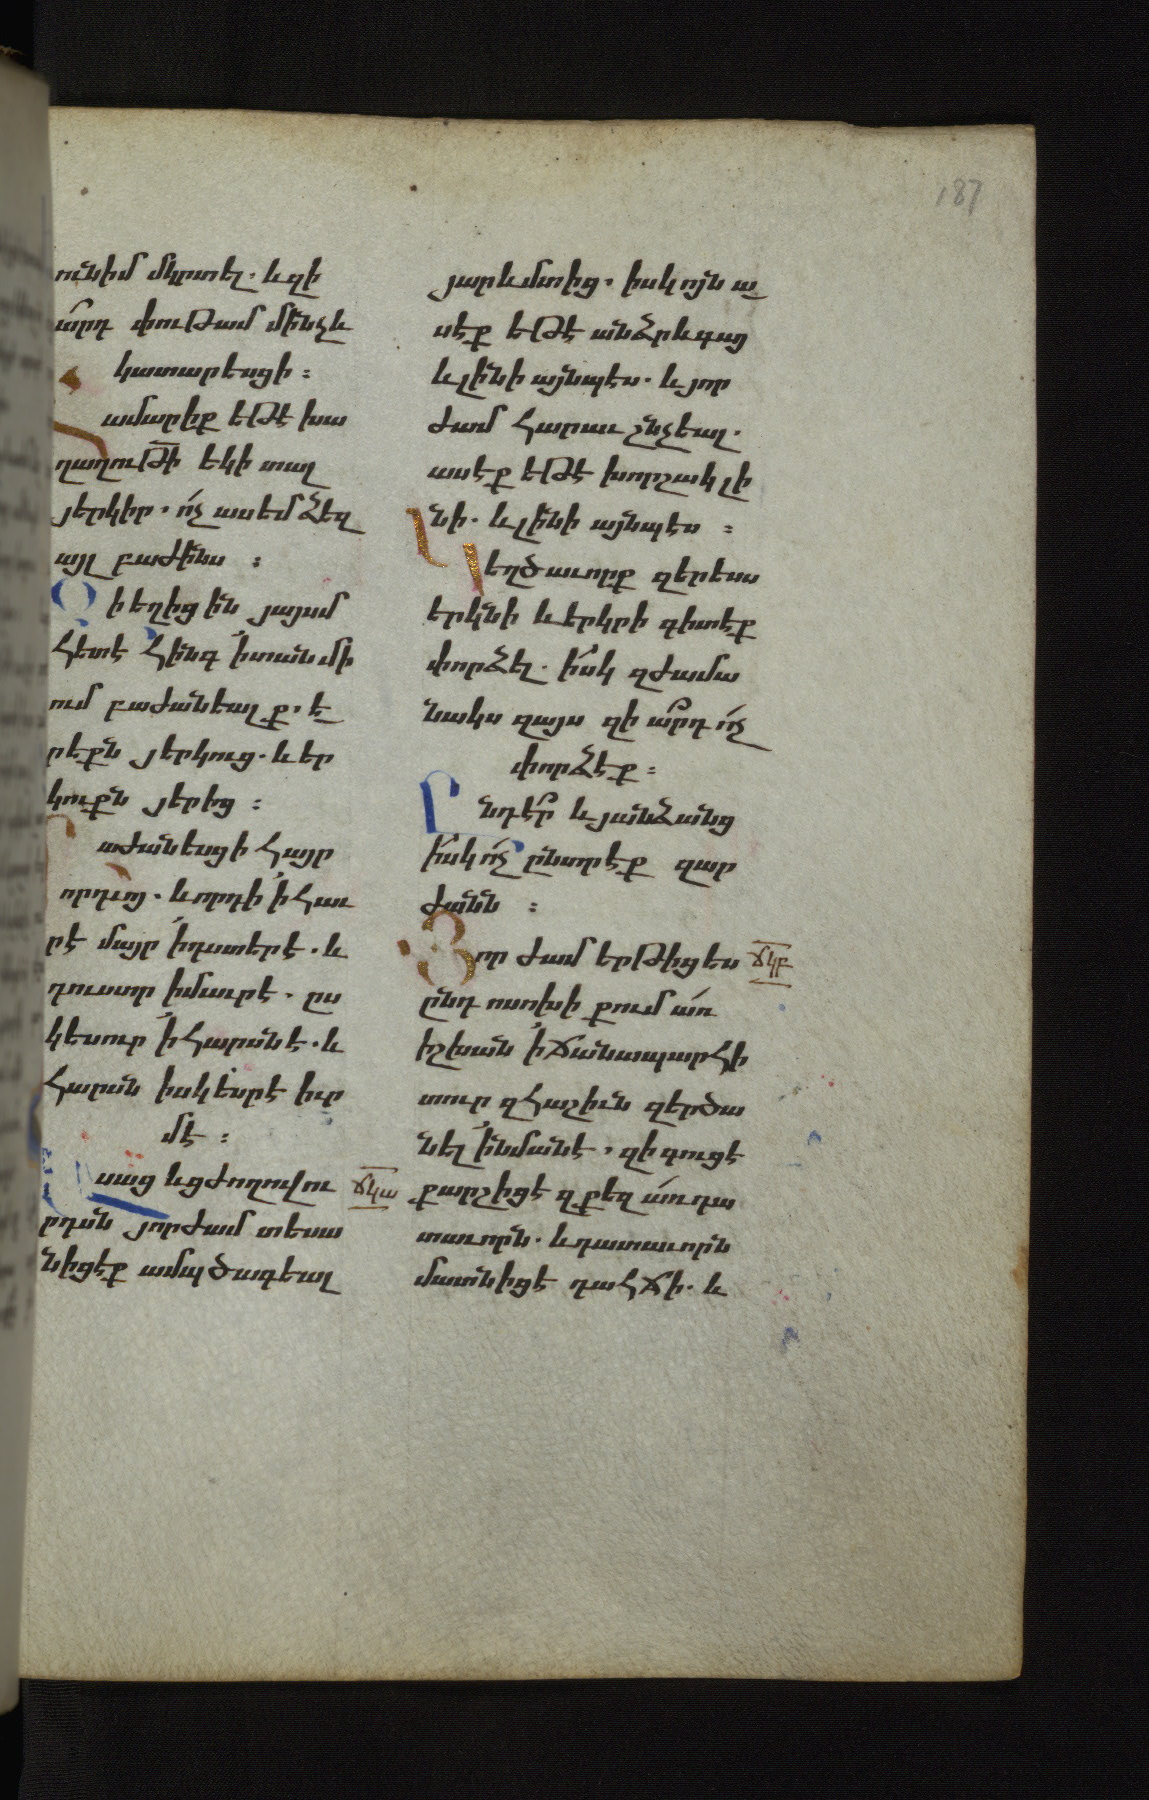 187
ունիմ մկրտել. և զի
արդ փութամ մինչև
կատարեսցի :
Համարիք եթէ խա
ղաղութի եկի տալ
յերկիր. ոչ ասեմ ձեզ
այլ բաժինս :
Զի եղիցին յայսմ
հետէ հինգ ի տան մի
ում բաժանեալ ք. ե
րեքն յերկուց. և եր
կուքն յերից :
Բաժանեսցի հայր
որդւոյ. և որդի ի հաւ
րէ մայր ի դստերէ. և
դուստր ի մաւրէ. ըս
կեսուր ի հարսնէ. և
հարսն ի սկեսրէ իւր
մէ :
Ասաց և ցժողովու ճկա
րդսն յորժամ տեսա
նիցէք ամպ ծագեալ
յարևմտից. իսկոյն ա
սէք եթէ անձրև գայ
և լինի այնպէս. և յոր
ժամ հարաւ շնչեալ.
ասէք եթէ խորշակ լի
նի. և լինի այնպէս :
Կեղծաւորք զերեսս
երկնի և երկրի գիտէք
փորձել. իսկ զժամա
նակս զայս զի արդ ոչ
փորձէք :
Ընդէր և յանձանց
իսկ ոչ ընտրէք զար
ժանն :
Յորժամ երթիցես ճկբ
ընդ ոսոխի քում առ
իշխան ի ճանապարհի
տուր զհաշիւն զերծա
նել ի նմանէ. զի գուցէ
քարշիցէ զքեզ առ դա
տաւորն. և դատաւորն
մատնիցէ դահճի. և